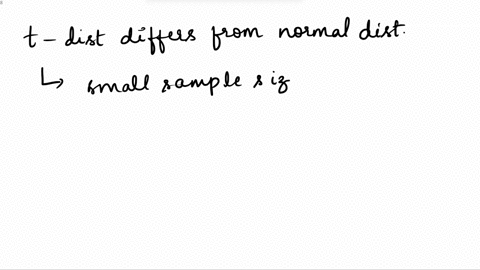 t - dist differs from normal dist.
↳ small sample siz